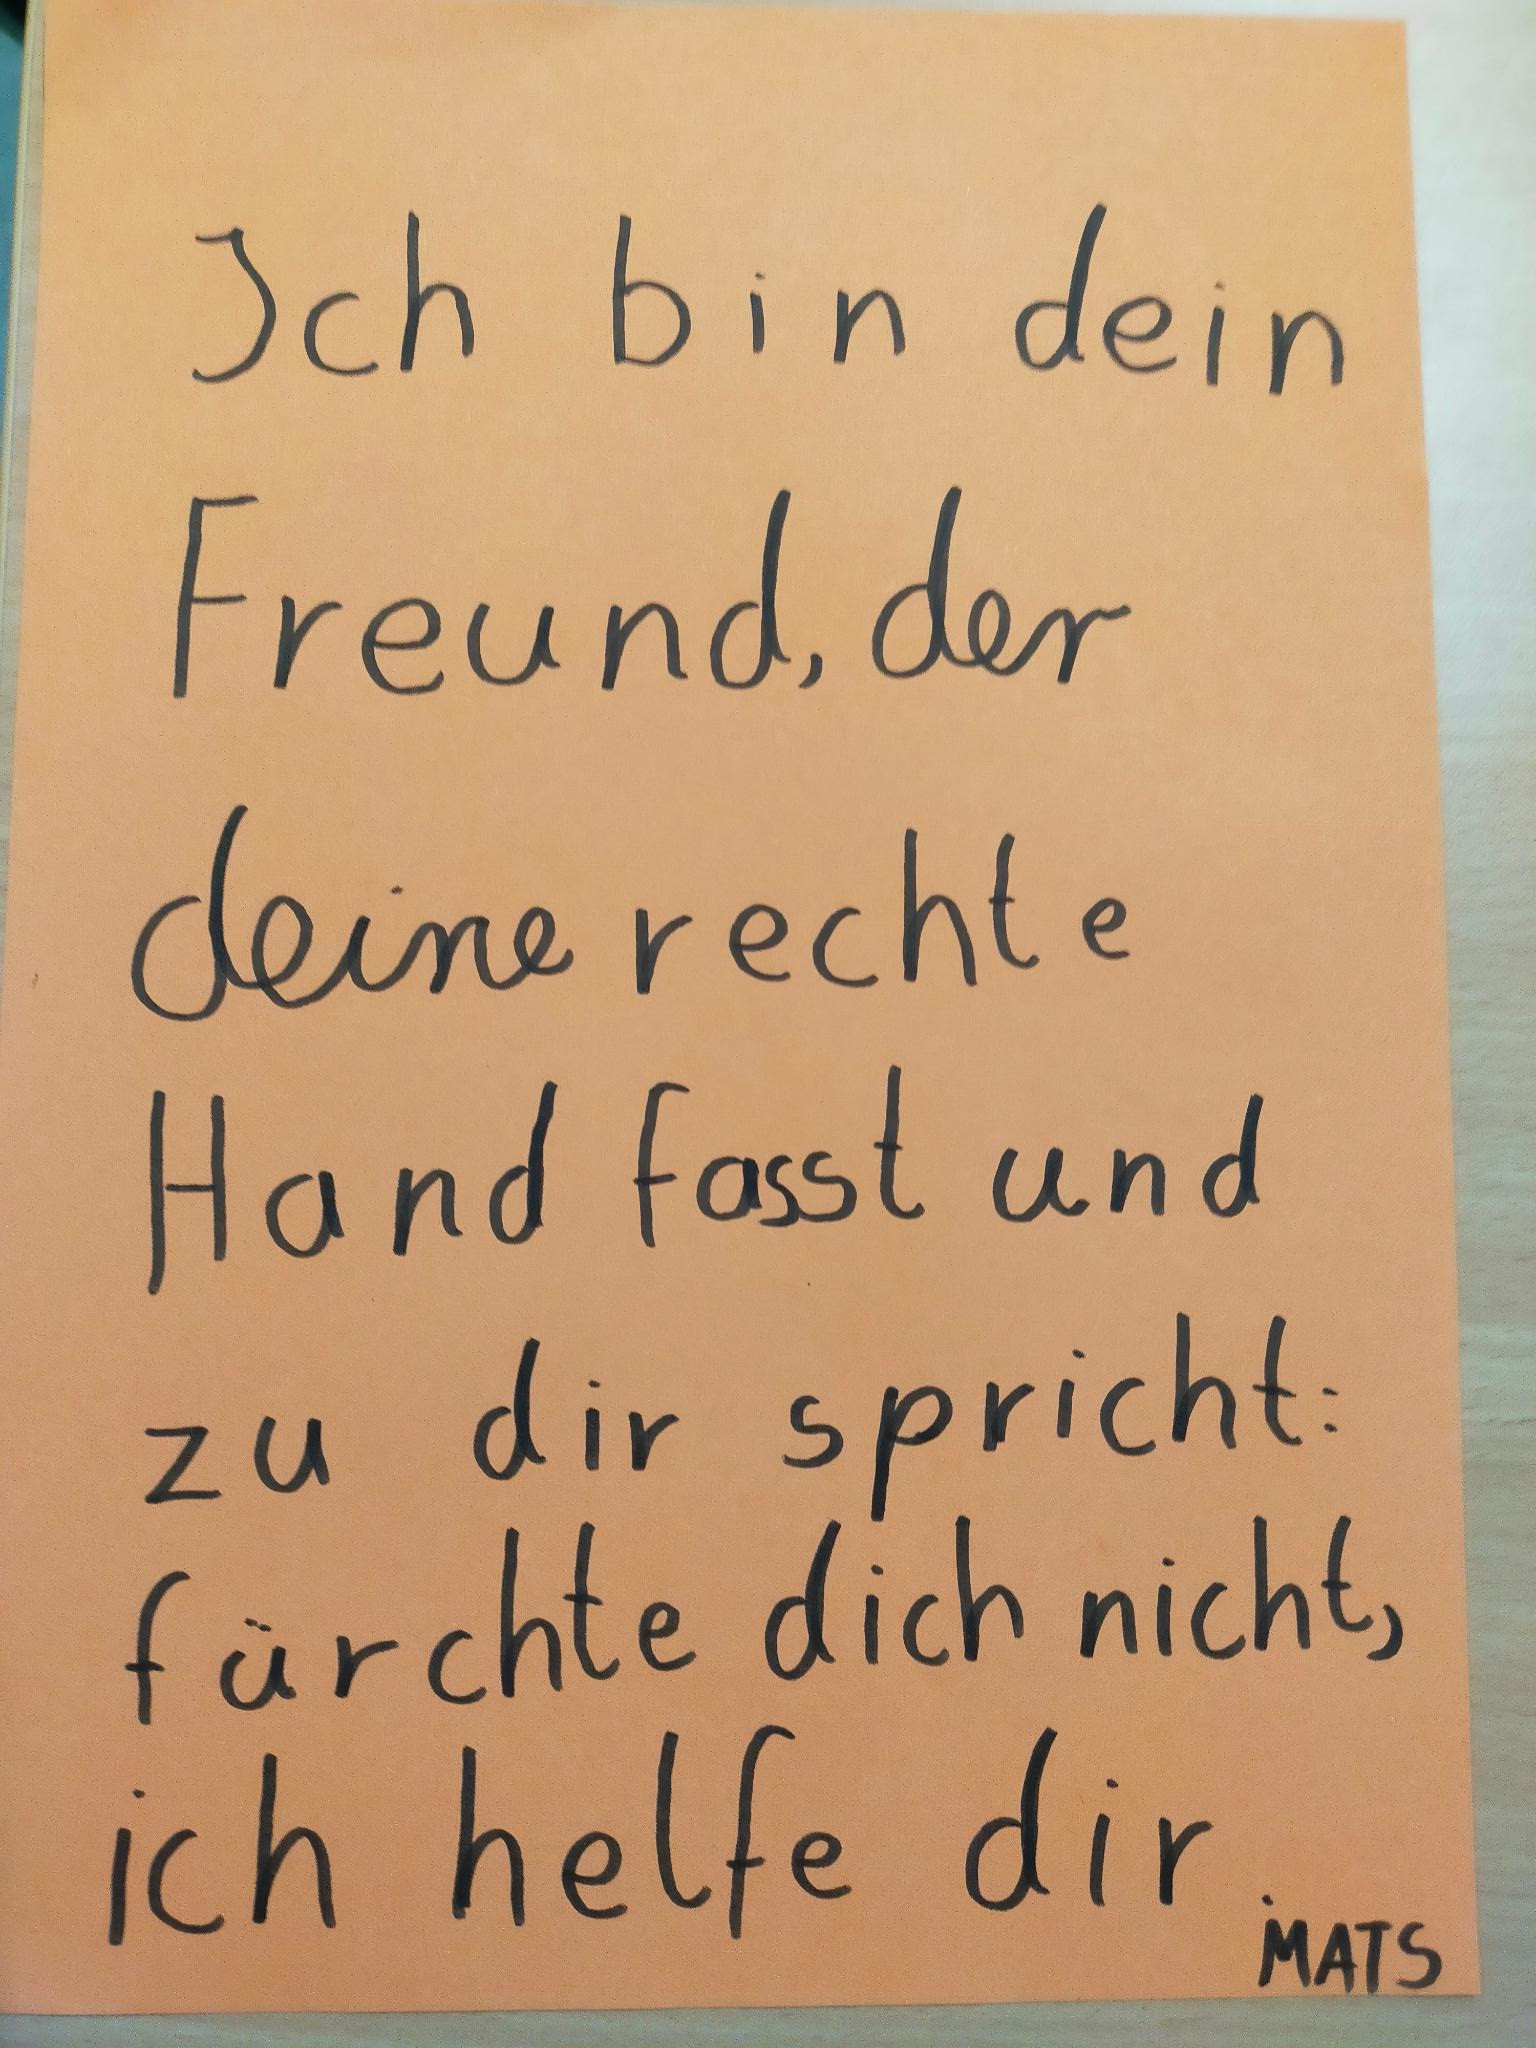 Ich bin dein
Freund, der
deine rechte
Hand fasst und
zu dir spricht:
fürchte dich nicht,
ich helfe dir.
MATS